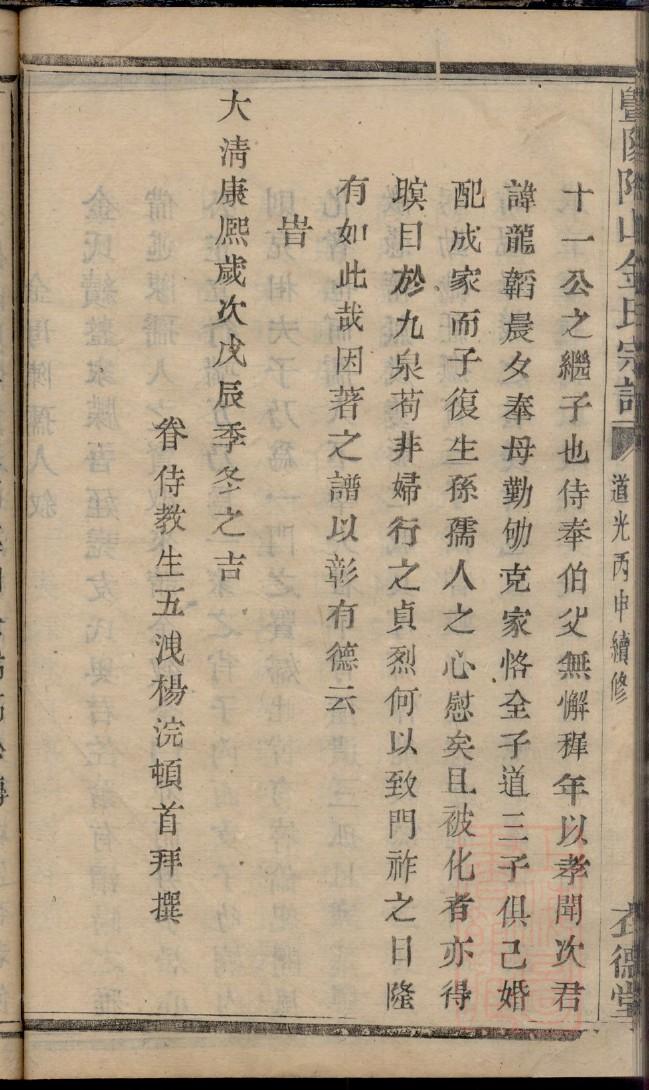 暨陽陶山金氏宗譜
道光丙申續修
十一公之繼子也侍奉伯父無懈穉年以孝聞次君
諱龍韜晨夕奉母勤劬克家恪全子道三子俱已婚
配成家而子復生孫孺人之心慰矣且被化者亦得
瞑目於九泉茍非婦行之貞烈何以致門祚之日隆
有如此哉因著之譜以彰有德云
旹
大清康熈歲次戊辰季冬之吉
眷侍教生五洩楊浣頓首拜撰